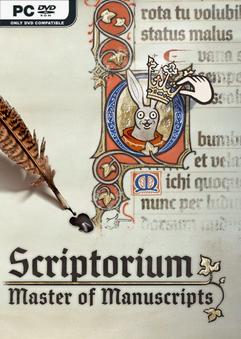 PC
DVD
ROM
ONLY DVD COMPATIBLE
rota tu volubil
status malus
vana s
bumb
et vela
Michi quoqu
nunc per ludu
dorsum nudu
Scriptorium
Master of Manuscripts